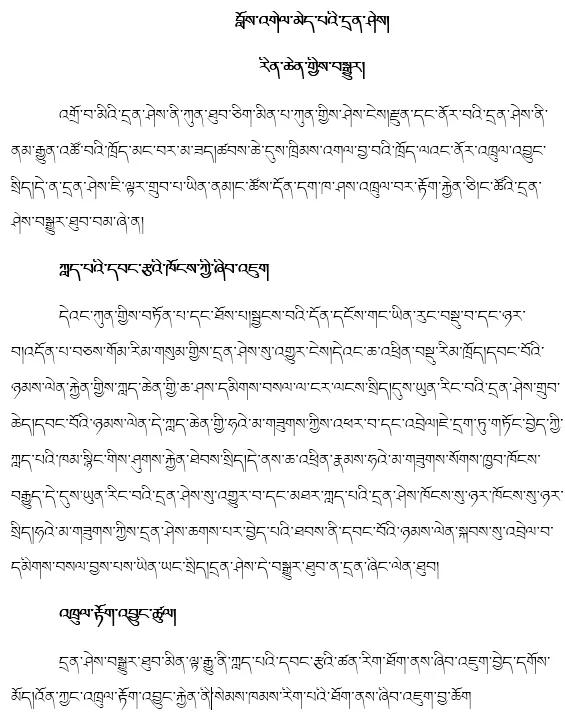 བློས་འགེལ་མེད་པའི་དྲན་ཤེས།
རིན་ཆེན་གྱིས་བསྒྱུར།
འགྲོ་བ་མིའི་དྲན་ཤེས་ནི་ཀུན་ཐུབ་ཅིག་མིན་པ་ཀུན་གྱིས་ཤེས་ངེས།རྫུན་དང་ནོར་བའི་དྲན་ཤེས་ནི་
ནམ་རྒྱུན་འཚོ་བའི་ཁྲོད་མང་བར་མ་ཟད།ཚབས་ཆེ་དུས་ཁྲིམས་འགལ་བྱ་བའི་ཁྲོད་ལའང་ནོར་འཁྲུལ་འབྱུང་
སྲིད།དེ་ན་དྲན་ཤེས་ཇི་ལྟར་གྲུབ་པ་ཡིན་ནམ།ང་ཚོས་དོན་དག་ཁ་ཤས་འཁྲུལ་བར་རྟོག་རྐྱེན་ཅི།ང་ཚོའི་དྲན་
ཤེས་བསྒྱུར་ཐུབ་བམ་ཞེ་ན།
ཀླད་པའི་དབང་རྩའི་ཁོངས་ཀྱི་ཞིབ་འཇུག
དེའང་ཀུན་གྱིས་བཏོན་པ་དང་ཐོས་པ།སྦྱངས་བའི་དོན་དངོས་གང་ཡིན་རུང་བསྡུ་བ་དང་ཉར་
བ།འདོན་པ་བཅས་གོམ་རིམ་གསུམ་གྱིས་དྲན་ཤེས་སུ་འགྱུར་ངེས།དེའང་ཆ་འཕྲིན་བསྡུ་རིམ་ཁྲོད།དབང་པོའི་
ཉམས་ལེན་རྐྱེན་གྱིས་ཀླད་ཆེན་གྱི་ཆ་ཤས་དམིགས་བསལ་ལ་ངར་ལངས་སྲིད།དུས་ཡུན་རིང་བའི་དྲན་ཤེས་གྲུབ་
ཆེད།དབང་པོའི་ཉམས་ལེན་དེ་ཀླད་ཆེན་གྱི་ཧའེ་མ་གཟུགས་ཀྱིས་འཕར་བ་དང་འབྲེལ།ཇེ་དྲག་ཏུ་གཏོང་བྱེད་ཀྱི་
ཀླད་པའི་ཁམ་སྙིང་གིས་ཤུགས་རྐྱེན་ཐེབས་སྲིད།དེ་ནས་ཆ་འཕྲིན་རྣམས་ཧའེ་མ་གཟུགས་སོགས་ཁྱབ་ཁོངས་
བརྒྱུད་དེ་དུས་ཡུན་རིང་བའི་དྲན་ཤེས་སུ་འགྱུར་བ་དང་མཐར་ཀླད་པའི་དྲན་ཤེས་ཁོངས་སུ་ཉར་ཁོངས་སུ་ཉར་
སྲིད།ཧའེ་མ་གཟུགས་ཀྱིས་དྲན་ཤེས་ཆགས་པར་བྱེད་པའི་ཐབས་ནི་དབང་པོའི་ཉམས་ལེན་སྐབས་སུ་འབྲེལ་བ་
དམིགས་བསལ་བྱས་པས་ཡིན་ཡང་སྲིད།དྲན་ཤེས་དེ་བསྒྱུར་ཐུབ་ན་དྲན་ཞིང་ལེན་ཐུབ།
འཁྲུལ་རྟོག་འབྱུང་ཚུལ།
དྲན་ཤེས་བསྒྱུར་ཐུབ་མིན་ལྟ་རྒྱུ་ནི་ཀླད་པའི་དབང་རྩའི་ཚན་རིག་ཐོག་ནས་ཞིབ་འཇུག་བྱེད་དགོས་
མོད།འོན་ཀྱང་འཁྲུལ་རྟོག་འབྱུང་རྐྱེན་ནི།སེམས་ཁམས་རིག་པའི་ཐོག་ནས་ཞིབ་འཇུག་བྱ་ཆོག